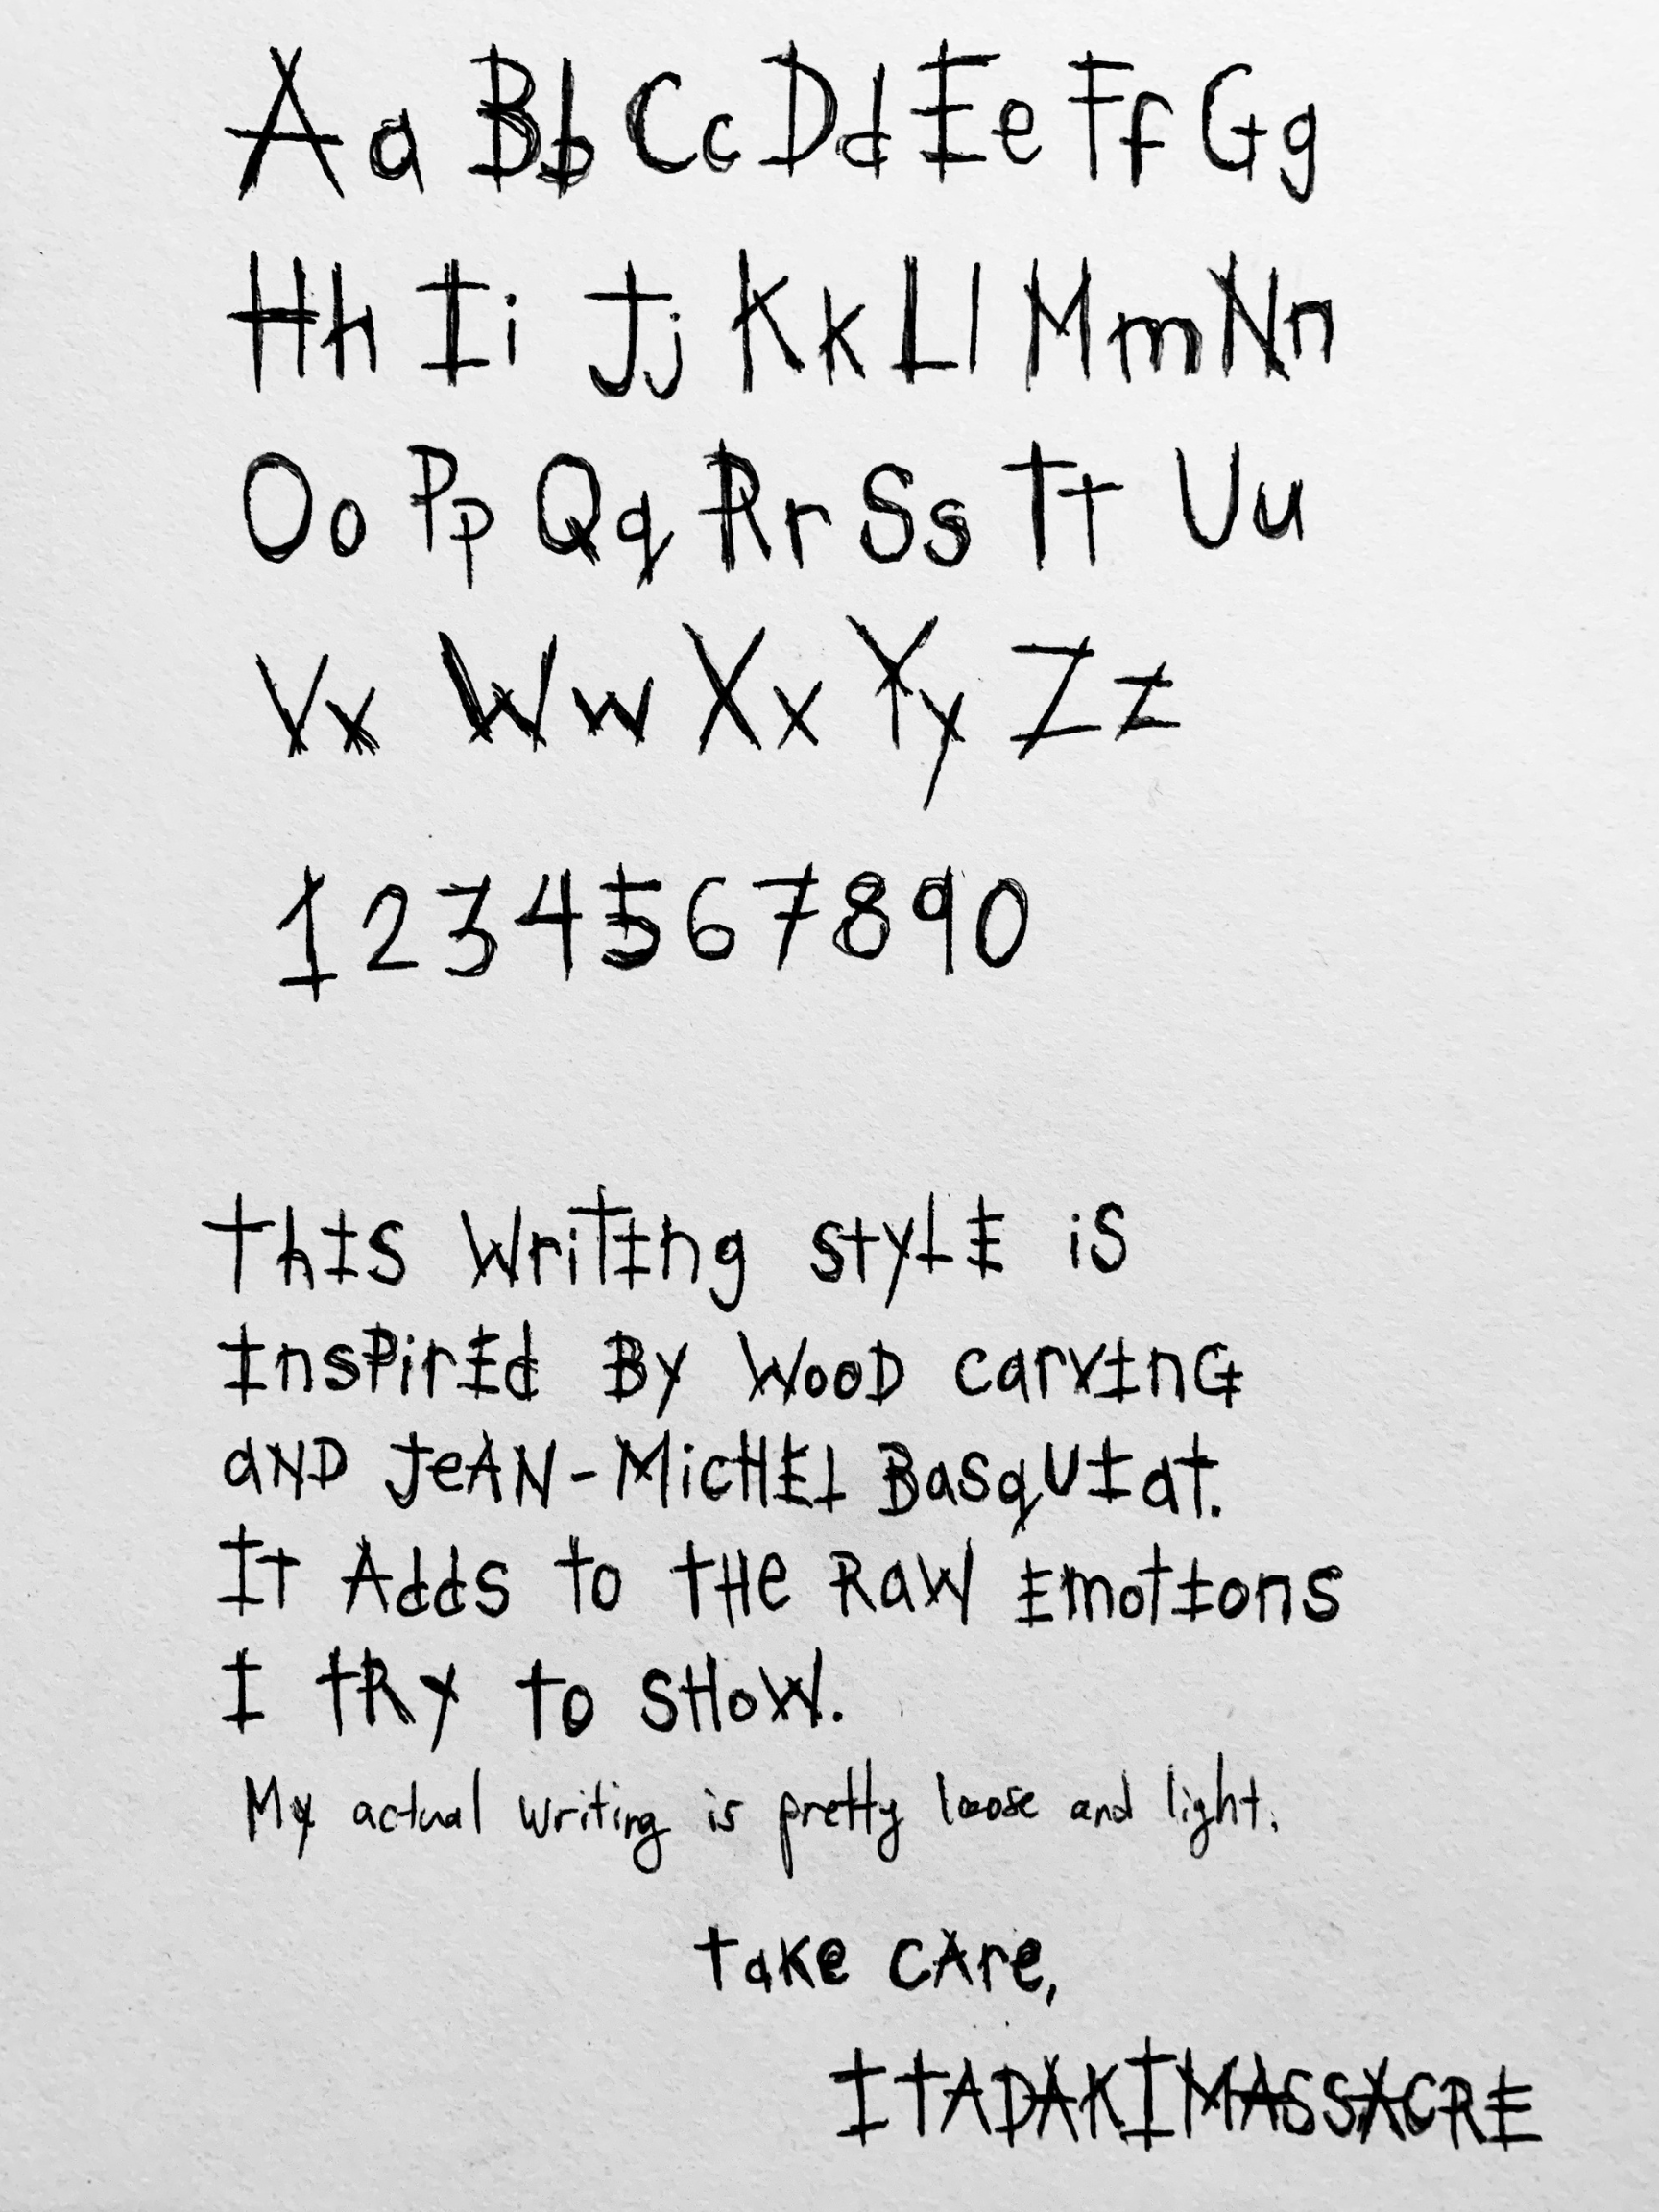 Aa Bb Cc Dd Ee Ff Gg
Hh Ii Jj Kk Ll Mm Nn
Oo Pp Qq Rr Ss Tt Uu
Vv Ww Xx Yy Zz
1234567890
thIs WriTIng stylE is
InsPirEd By WooD carvInG
aND JeAN-MicHEL BasqUIat.
It Adds to tHe Raw EmotIons
I tRy to sHow.
My actual writing is pretty loose and light.
take cAre,
ITADAKIMASSACRE